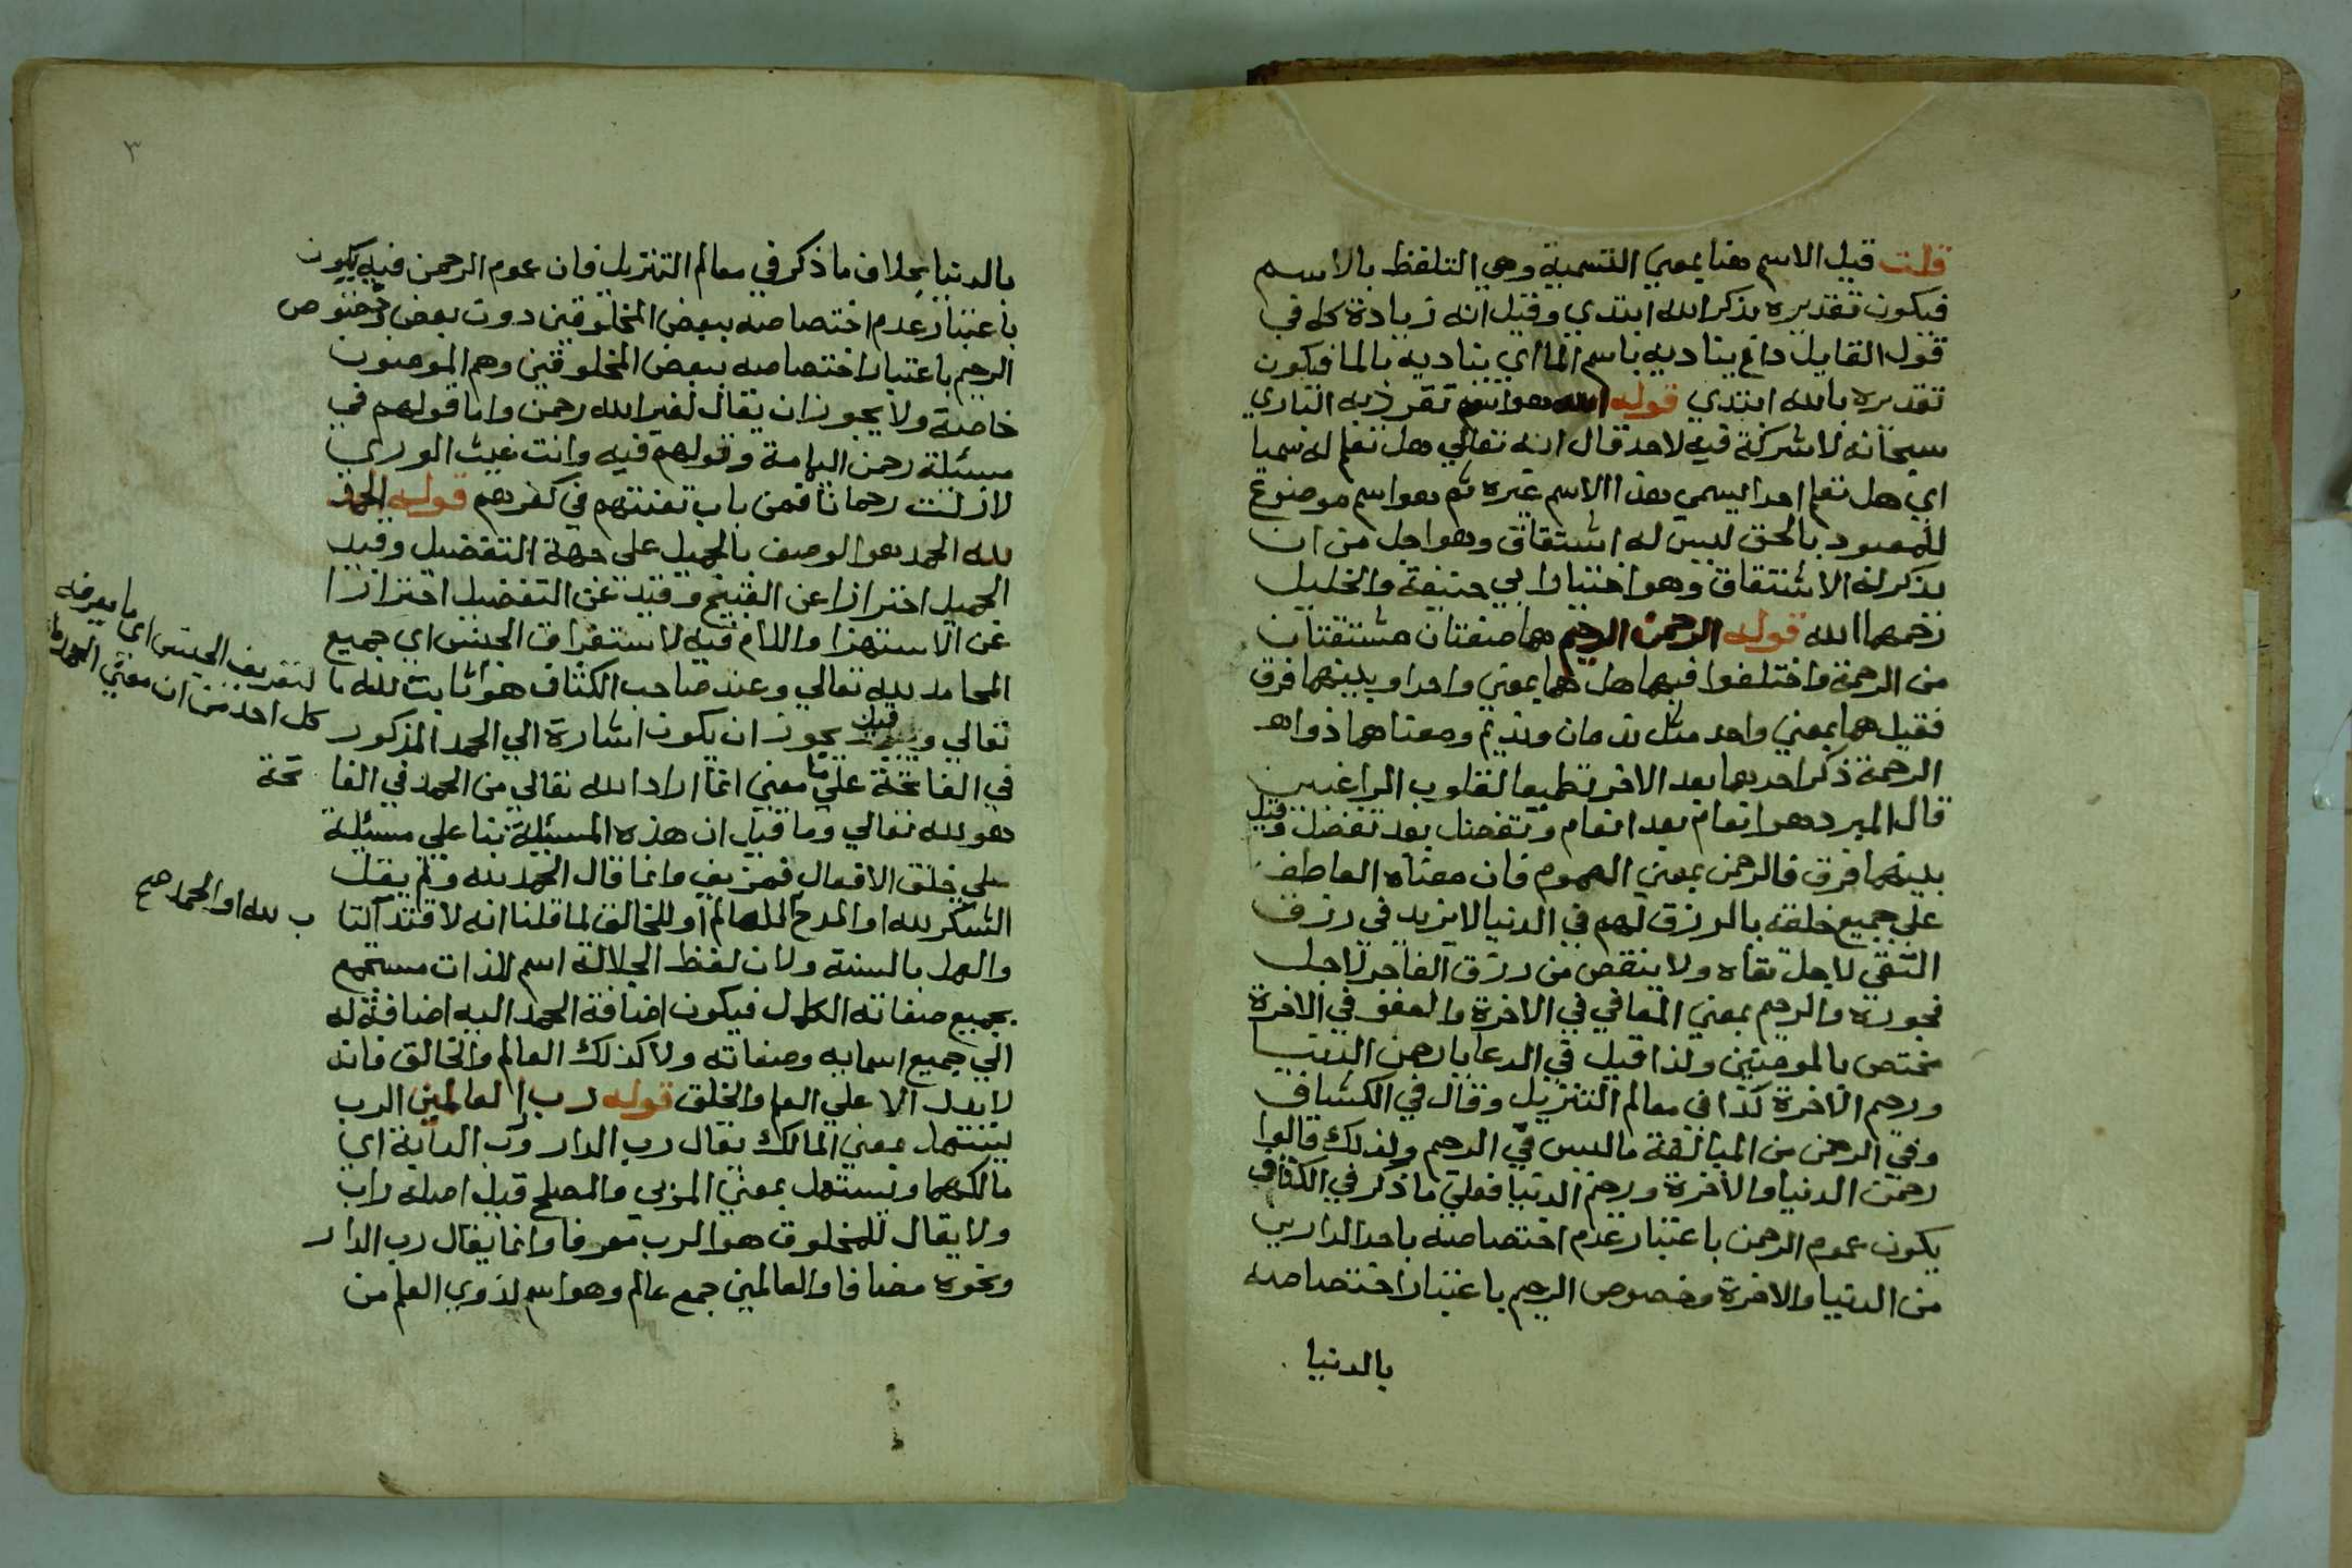 قلت قيل الاسم هنا بمعني التسمية وهي التلفظ بالاسم
فيكون تقديره بذكر الله ابتدي وقيل انه زيادة كه في
قول القايل داع يناديه باسم الما اي يناديه بالما فيكون
تقديره بالله ابتدي قوله الله هو اسم تفرد به الباري
سبحانه لا شركة فيه لاحد قال الله تعالي هل تعلم له سميا
اي هل تعلم احدا يسمي بهذا الاسم غيره ثم هو اسم موضوع
للمعبود بالحق ليس له اشتقاق وهو اجل من ان
يذكر له الاشتقاق وهو اختيار ابي حنيفة والخليل
رحمهما الله قوله الرحمن الرحيم هما صفتان مشتقتان
من الرحمة واختلفوا فيهما هل هما بمعني واحد او بينهما فرق
فقيل هما بمعني واحد مثل ندمان ونديم ومعناهما ذو
الرحمة ذكر احدهما بعد الاخر تطميعا لقلوب الراغبين
قال المبرد هو انعام بعد انعام وتفضل بعد تفضل وقيل
بينهما فرق فالرحمن بمعني العموم فان معناه العاطف
علي جميع خلقه بالرزق لهم في الدنيا لا يزيد في رزق
التقي لاجل تقاه ولا ينقص من رزق الفاجر لاجل
فجوره والرحيم بمعني المعافي في الاخرة والعفو في الاخرة
مختص بالمومنين ولذا قيل في الدعا يا رحمن الدنيا
ورحيم الاخرة كذا في معالم التنزيل وقال في الكشاف
وفي الرحمن من المبالغة ما ليس في الرحيم ولذلك قالوا
رحمن الدنيا والاخرة ورحيم الدنيا فعلي ما ذكر في الكشاف
يكون عموم الرحمن باعتبار عدم اختصاصه باحد الدارين
من الدنيا والاخرة وخصوص الرحيم باعتبار اختصاصه
بالدنيا
٣
بالدنيا بخلاف ما ذكر في معالم التنزيل فان عموم الرحمن فيه يكون
باعتبار عدم اختصاصه ببعض المخلوقين دون بعض وخصوص
الرحيم باعتبار اختصاصه ببعض المخلوقين وهم المومنون
خاصة ولا يجوز ان يقال لغير الله رحمن واما قولهم في
مسيلة رحمن اليامة وقولهم فيه وانت غيث الوري
لازلت رحمانا فمن باب تعنتهم في كفرهم قوله الحمد
لله الحمد هو الوصف بالجميل علي جهة التفضيل وقيد
الجميل احترازا عن القبيح وقيد عن التفضيل احترازا
عن الاستهزا واللام فيه لاستغراق الجنس اي جميع
المحامد لله تعالي وعند صاحب الكشاف هو ثابت لله
لتعريف الجنس اي ما يعرفه
كل احد من ان معني الحمد ما
تعالي وقيل يجوز ان يكون اشارة الي الحمد المذكور
في الفاتحة علي معني انما اراد الله تعالي من الحمد في الفاتحة
هو لله تعالي وما قيل ان هذه المسئلة بنا علي مسئلة
علي خلق الافعال فمزيف وانما قال الحمد لله ولم يقل
الشكر لله او المدح للعالم او للخالق لما قلنا انه لاقتدا الكتا
ب لله او الحمد صح
والعمل بالسنة ولان لفظ الجلالة اسم للذات مستجمع
بجميع صفاته الكمال فيكون اضافة الحمد اليه اضافة له
الي جميع اسمايه وصفاته ولا كذلك العالم والخالق فانه
لا يدل الا علي العلم والخلق قوله رب العالمين الرب
يستعمل بمعني المالك يقال رب الدار ورب الدابة اي
مالكهما ويستعمل بمعني المربي والمصلح قيل اصله راب
ولا يقال للمخلوق هو الرب معرفا وانما يقال رب الدار
ونحوه مضافا والعالمين جمع عالم وهو اسم لذوي العلم من